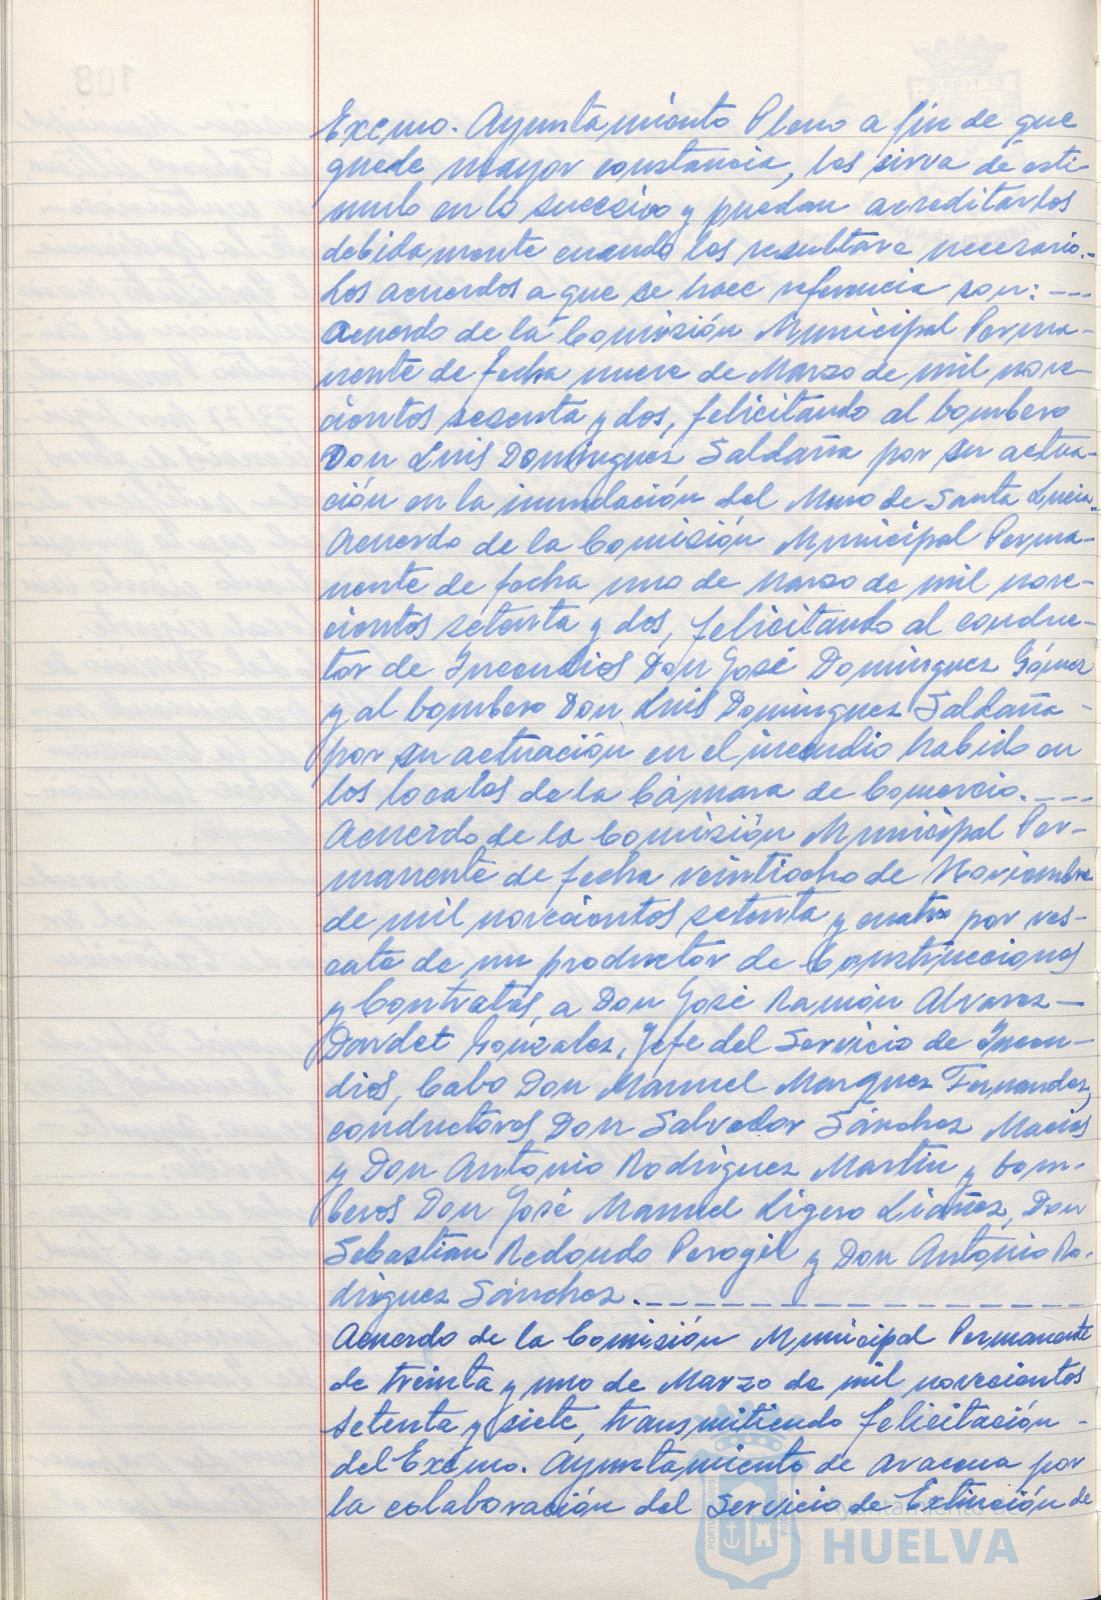 Excmo. Ayuntamiento Pleno a fin de que
quede mayor constancia, les sirva de esti-
mulo en lo sucesivo y puedan acreditarlos
debidamente cuando les resultare necesario.-
Los acuerdos a que se hace referencia son: ---
Acuerdo de la Comisión Municipal Perma-
nente de fecha nueve de Marzo de mil nove-
cientos sesenta y dos, felicitando al bombero
Don Luis Domínguez Saldaña por su actua-
ción en la inundación del Muro de Santa Lucia.-
Acuerdo de la Comisión Municipal Perma-
nente de fecha uno de Marzo de mil nove-
cientos setenta y dos, felicitando al conduc-
tor de Incendios Don José Domínguez Gómez
y al bombero Don Luis Domínguez Saldaña -
por su actuación en el incendio habido en
los locales de la Cámara de Comercio. ---
Acuerdo de la Comisión Municipal Per-
manente de fecha veintiocho de Noviembre
de mil novecientos setenta y cuatro por res-
cate de un productor de Construcciones
y Contratas, a Don José Ramón Alvarez-
Dardet González, Jefe del Servicio de Incen-
dios, Cabo Don Manuel Marquez Fernandez,
conductores Don Salvador Sánchez Macias
y Don Antonio Rodriguez Martin y bom-
beros Don José Manuel Ligero Liañez, Don
Sebastian Redondo Perogil y Don Antonio Ro-
driguez Sánchez. --------------
Acuerdo de la Comisión Municipal Permanente
de treinta y uno de Marzo de mil novecientos
setenta y siete, transmitiendo felicitación -
del Excmo. Ayuntamiento de Aracena por
la colaboración del Servicio de Extinción de
Ayuntamiento de
HUELVA